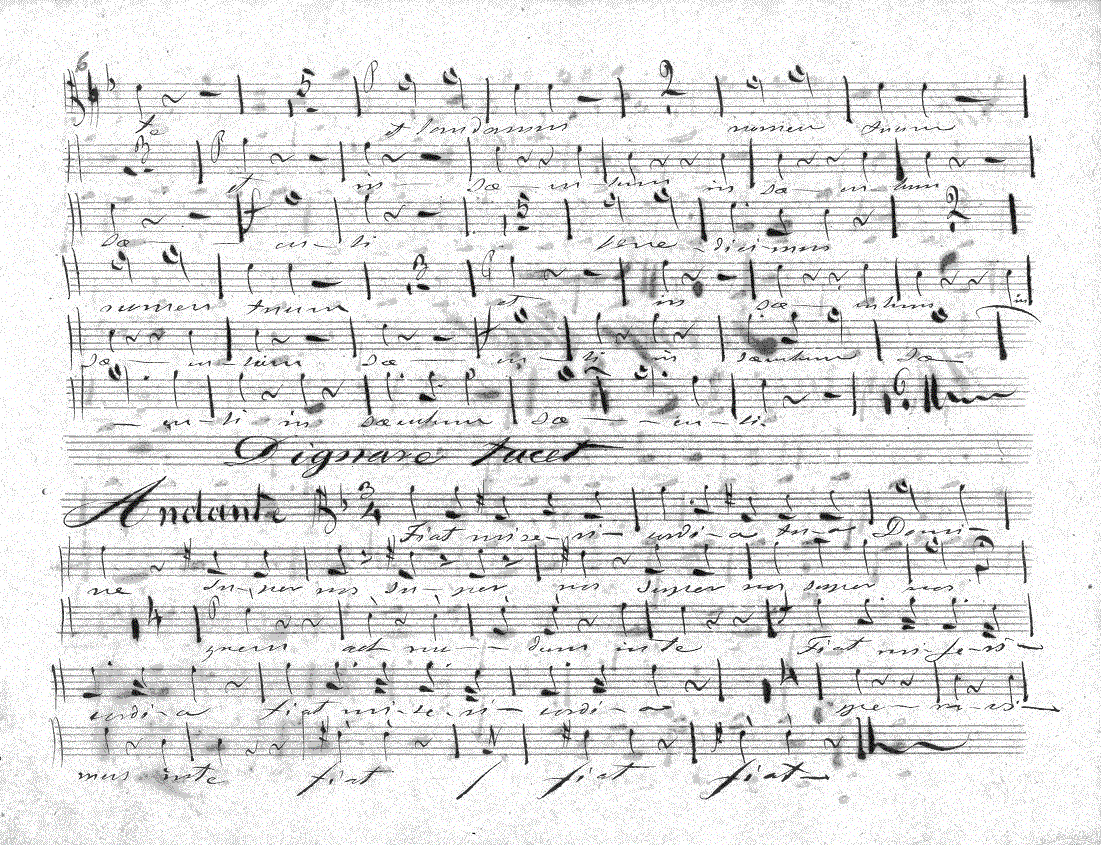 6
te 5 P et laudamus 2 nomen tuum
3 P et in sæ - cu - lum in sæ - cu - lum
sæ - f cu - li 5 bene - dicimus 2
nomen tuum 3 P et in sæ - culum in
sæ - cu - lum sæ - f cu - li in sæculum sæ -
- cu - li in sæculum sæ - - cu - li. 6
Dignare tacet
Andante 3 4 Fiat mise - ri - cordi - a tu - a Domi -
ne su - per nos su - per nos super nos super nos.
4 P quem ad mo - dum in te f Fiat mi - se - ri -
cordi - a fiat mi - se - ri - cordi - a 4 spe - ra - vi -
mus in te fiat fiat fiat